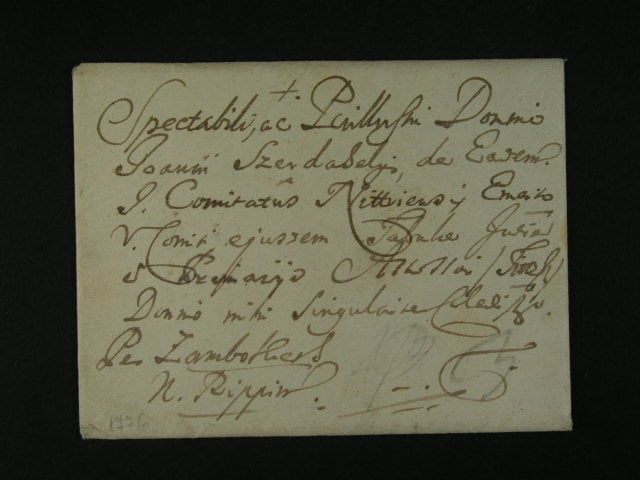 +
Spectabili, ac Perillustri Domino
Joanni Szerdahelyi, de Eadem
I. Comitatus Nittriensis Emerito
V. Comiti ejusdem Tabulae Judriae
Primario Assessori
Domino mihi singulariter
Per Zambokreth
N. Rippin
1776